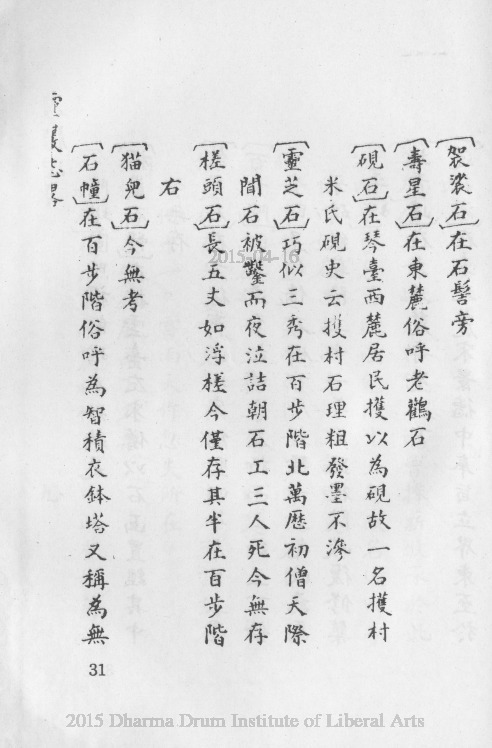 ［袈裟石］在石髻旁
［壽星石］在東麓俗呼老鸛石
［硯石］在琴臺西麓居民擭以為硯故一名擭村
米氏硯史云擭村石理粗發墨不滲
［靈芝石］巧似三秀在百步階北萬曆初僧天際
間石被鑿而夜泣詰朝石工三人死今無存
［槎頭石］長五丈如浮槎今僅存其半在百步階
右
［猫兒石］今無考
［石幢］在百步階俗呼為智積衣鉢塔又稱為無
31
2015-04-16
2015 Dharma Drum Institute of Liberal Arts